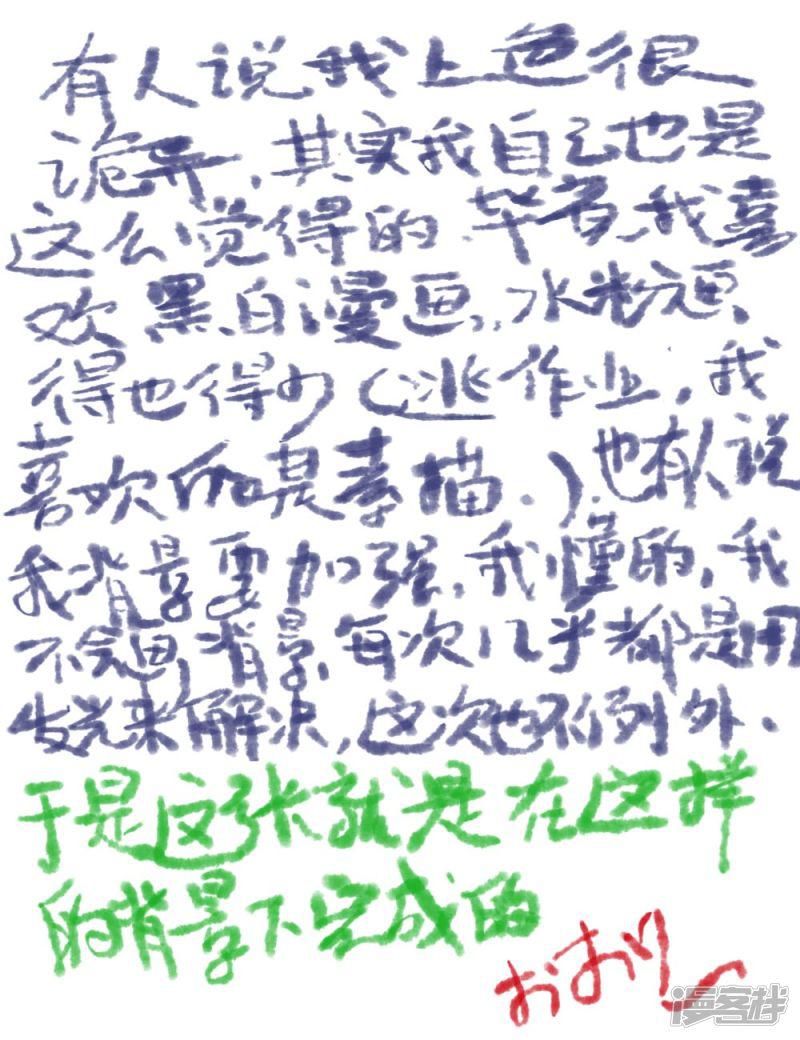 有人说我上色很
诡异,其实我自己也是
这么觉得的.毕竟,我喜
欢黑白漫画,,水粉画
得也得少(逃作业,我
喜欢的是素描.)也有人说
我背景要加强,我懂的,我
不会画背景,每次几乎都是用
发光来解决,这次也不例外.
于是这张就是在这样
的背景下完成的
おおり
漫客栈